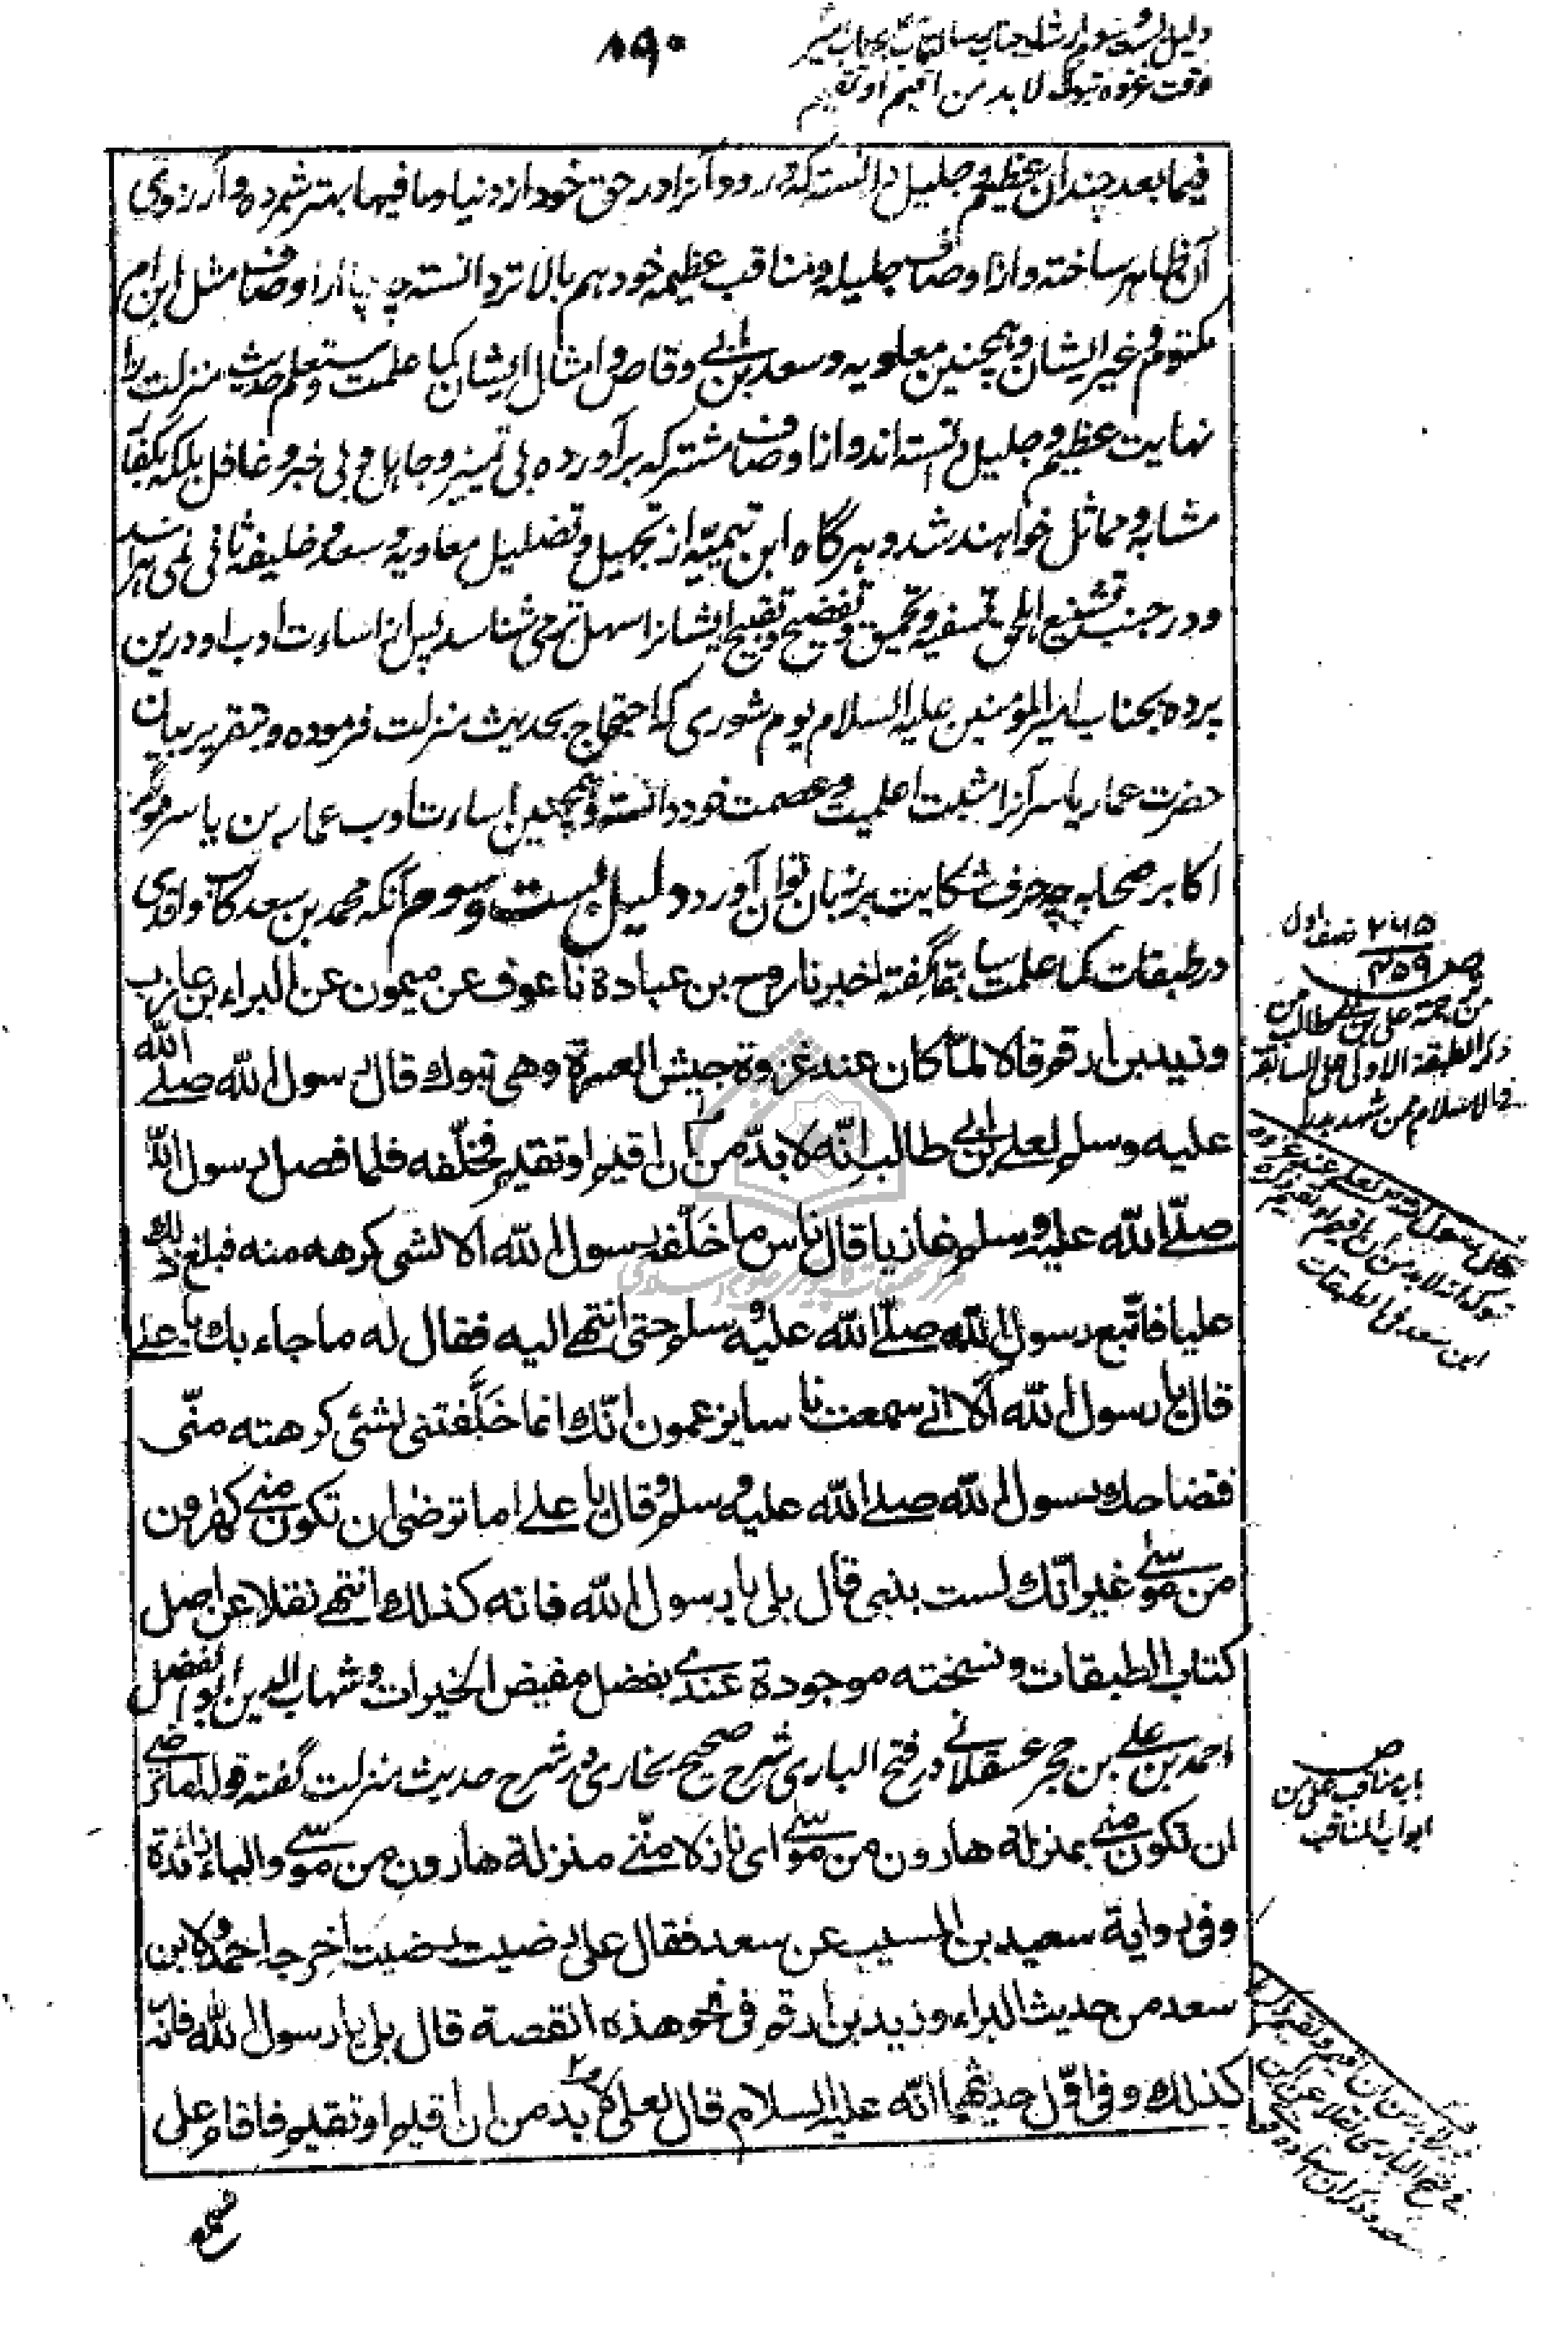 ۸۹۰
دلیل بست و سوم ارشاد جناب رسالتمآب بجناب امیر
وقت غزوه تبوک لا بد من ان اقیم او تقیم
فیما بعد چندان عظیم و جلیل دانسته که ورود آنرا در حق خود از دنیا و ما فیها بهتر شمرده و آرزوی
آن ظاهر ساخته و از اوصاف جلیله و مناقب عظیمه خود هم بالاتر دانسته چه جا از اوصاف مثل ابن ام
مکتوم و غیر ایشان و همچنین معاویه و سعد بن ابی وقاص و امثال ایشان کما علمت و ستعلم حدیث منزلت را
نهایت عظیم و جلیل دانسته اند و از اوصاف مشترکه بر آورده بی تمیز و جاهل و بی خبر و غافل بلکه بکفار
مشابه و مماثل خواهند شد و هرگاه ابن تیمیّه از تجهیل و تضلیل معاویه و سعد و خلیفه ثانی نمی هراسد
و در جنب تشنیع اهل حق تسفیه و تحمیق و تفضیح و تقبیح ایشانرا سهل تر می شناسد پس از اساءت ادب او درین
پرده بجناب امیر المؤمنین علیه السلام یوم شوری که احتجاج بحدیث منزلت فرموده و بتقریر بیان
حضرت عمار یاسر آنرا مثبت اعلمیت و عصمت خود دانسته و همچنین اساءت ادب عمار بن یاسر و دیگر
اکابر صحابه چه حرف شکایت بر زبان توان آورد دلیل بست و سوم آنکه محمد بن سعد کاتب واقدی
در طبقات کما علمت سابقا گفته اخبرنا روح بن عبادة نا عوف عن میمون عن البراء بن عازب
و زید بن ارقم قالا لمّا کان عند غزوة جیش العسرة و هی تبوک قال رسول الله صلی الله
علیه و سلم لعلی بن ابی طالب انّه لا بدّ من ان اقیم او تقیم فخلّفه فلما فصل رسول الله
صلّی الله علیه و سلم غازیا قال ناس ما خلّفه رسول الله الا لشی کرهه منه فبلغ ذلک
علیا فاتّبع رسول الله صلّی الله علیه و سلم حتی انتهی الیه فقال له ما جاء بک یا علی
قال یا رسول الله الا انی سمعت ناسا یزعمون انّک انما خلّفتنی لشئی کرهته منّی
فتضاحک رسول الله صلی الله علیه و سلم و قال یا علی اما ترضی ان تکون منی کهرون
من موسی غیر انّک لست بنبی قال بلی یا رسول الله فانه کذلک انتهی نقلا عن اصل
کتاب الطبقات و نسخته موجودة عندی بفضل مفیض الخیرات و شهاب الدین ابو الفضل
احمد بن علی بن حجر عسقلانی در فتح الباری شرح صحیح بخاری در شرح حدیث منزلت گفته قوله اما ترضی
ان تکون منی بمنزلة هارون من موسی ای نازلا منّی منزلة هارون من موسی و الباء زائدة
و فی روایة سعید بن المسیب عن سعد فقال علی رضیت رضیت اخرجه احمد و لابن
سعد من حدیث البراء و زید بن ارقم فی نحو هذه القصة قال بلی یا رسول الله فانّه
کذلک و فی اوّل حدیثهما انّه علیه السلام قال لعلی لا بد من ان اقیم او تقیم فاقام علی
فسمع
نصف اول ۲۶۵
ص ۴۵۹
من ترجمة علی بن ابی طالب من
ذکر الطبقة الاولی علی السابقة
فی الاسلام ممن شهد بدرا
قال رسول الله ص لعلی عند غزوه
تبوک انه لا بد من ان اقیم او تقیم ذکره
ابن سعد فی الطبقات
ص
باب مناقب علی من
ابواب المناقب